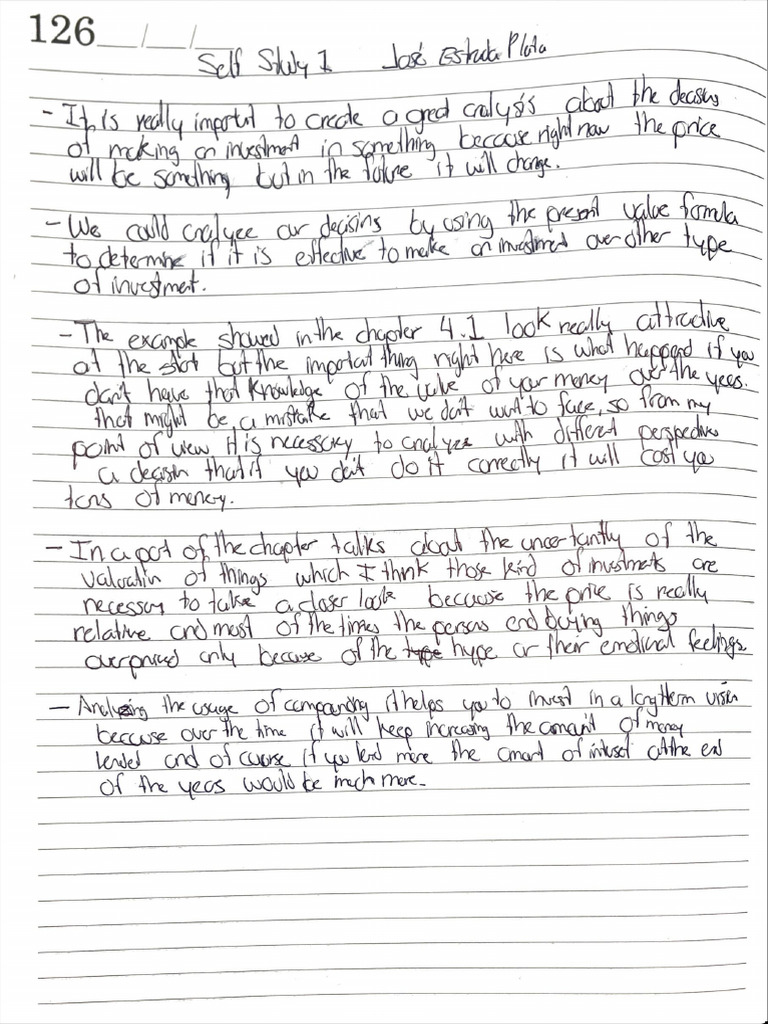 126 __/__/__
Self Study 1 José Estrada Plata
- It is really important to create a great analysis about the decision
of making an investment in something because right now the price
will be something but in the future it will change.
- We could analyze our decisions by using the present value formula
to determine if it is effective to make an investment over other type
of investment.
- The example showed in the chapter 4.1 look really attractive
at the start but the important thing right here is what happened if you
don't have that knowledge of the value of your money over the years.
that might be a mistake that we don't want to face, so from my
point of view it is necessary to analyze with different perspective
a decision that if you don't do it correctly it will cost you
tons of money.
- In a part of the chapter talks about the uncertantly of the
valuation of things which I think those kind of investments are
necessary to take a closer look because the price is really
relative and most of the times the persons end buying things
overpriced only because of the hype or their emotional feelings.
- Analyzing the usage of compounding it helps you to invest in a longterm vision
because over the time it will keep increasing the amount of money
lended and of course if you lend more the amount of interest at the end
of the years would be much more.